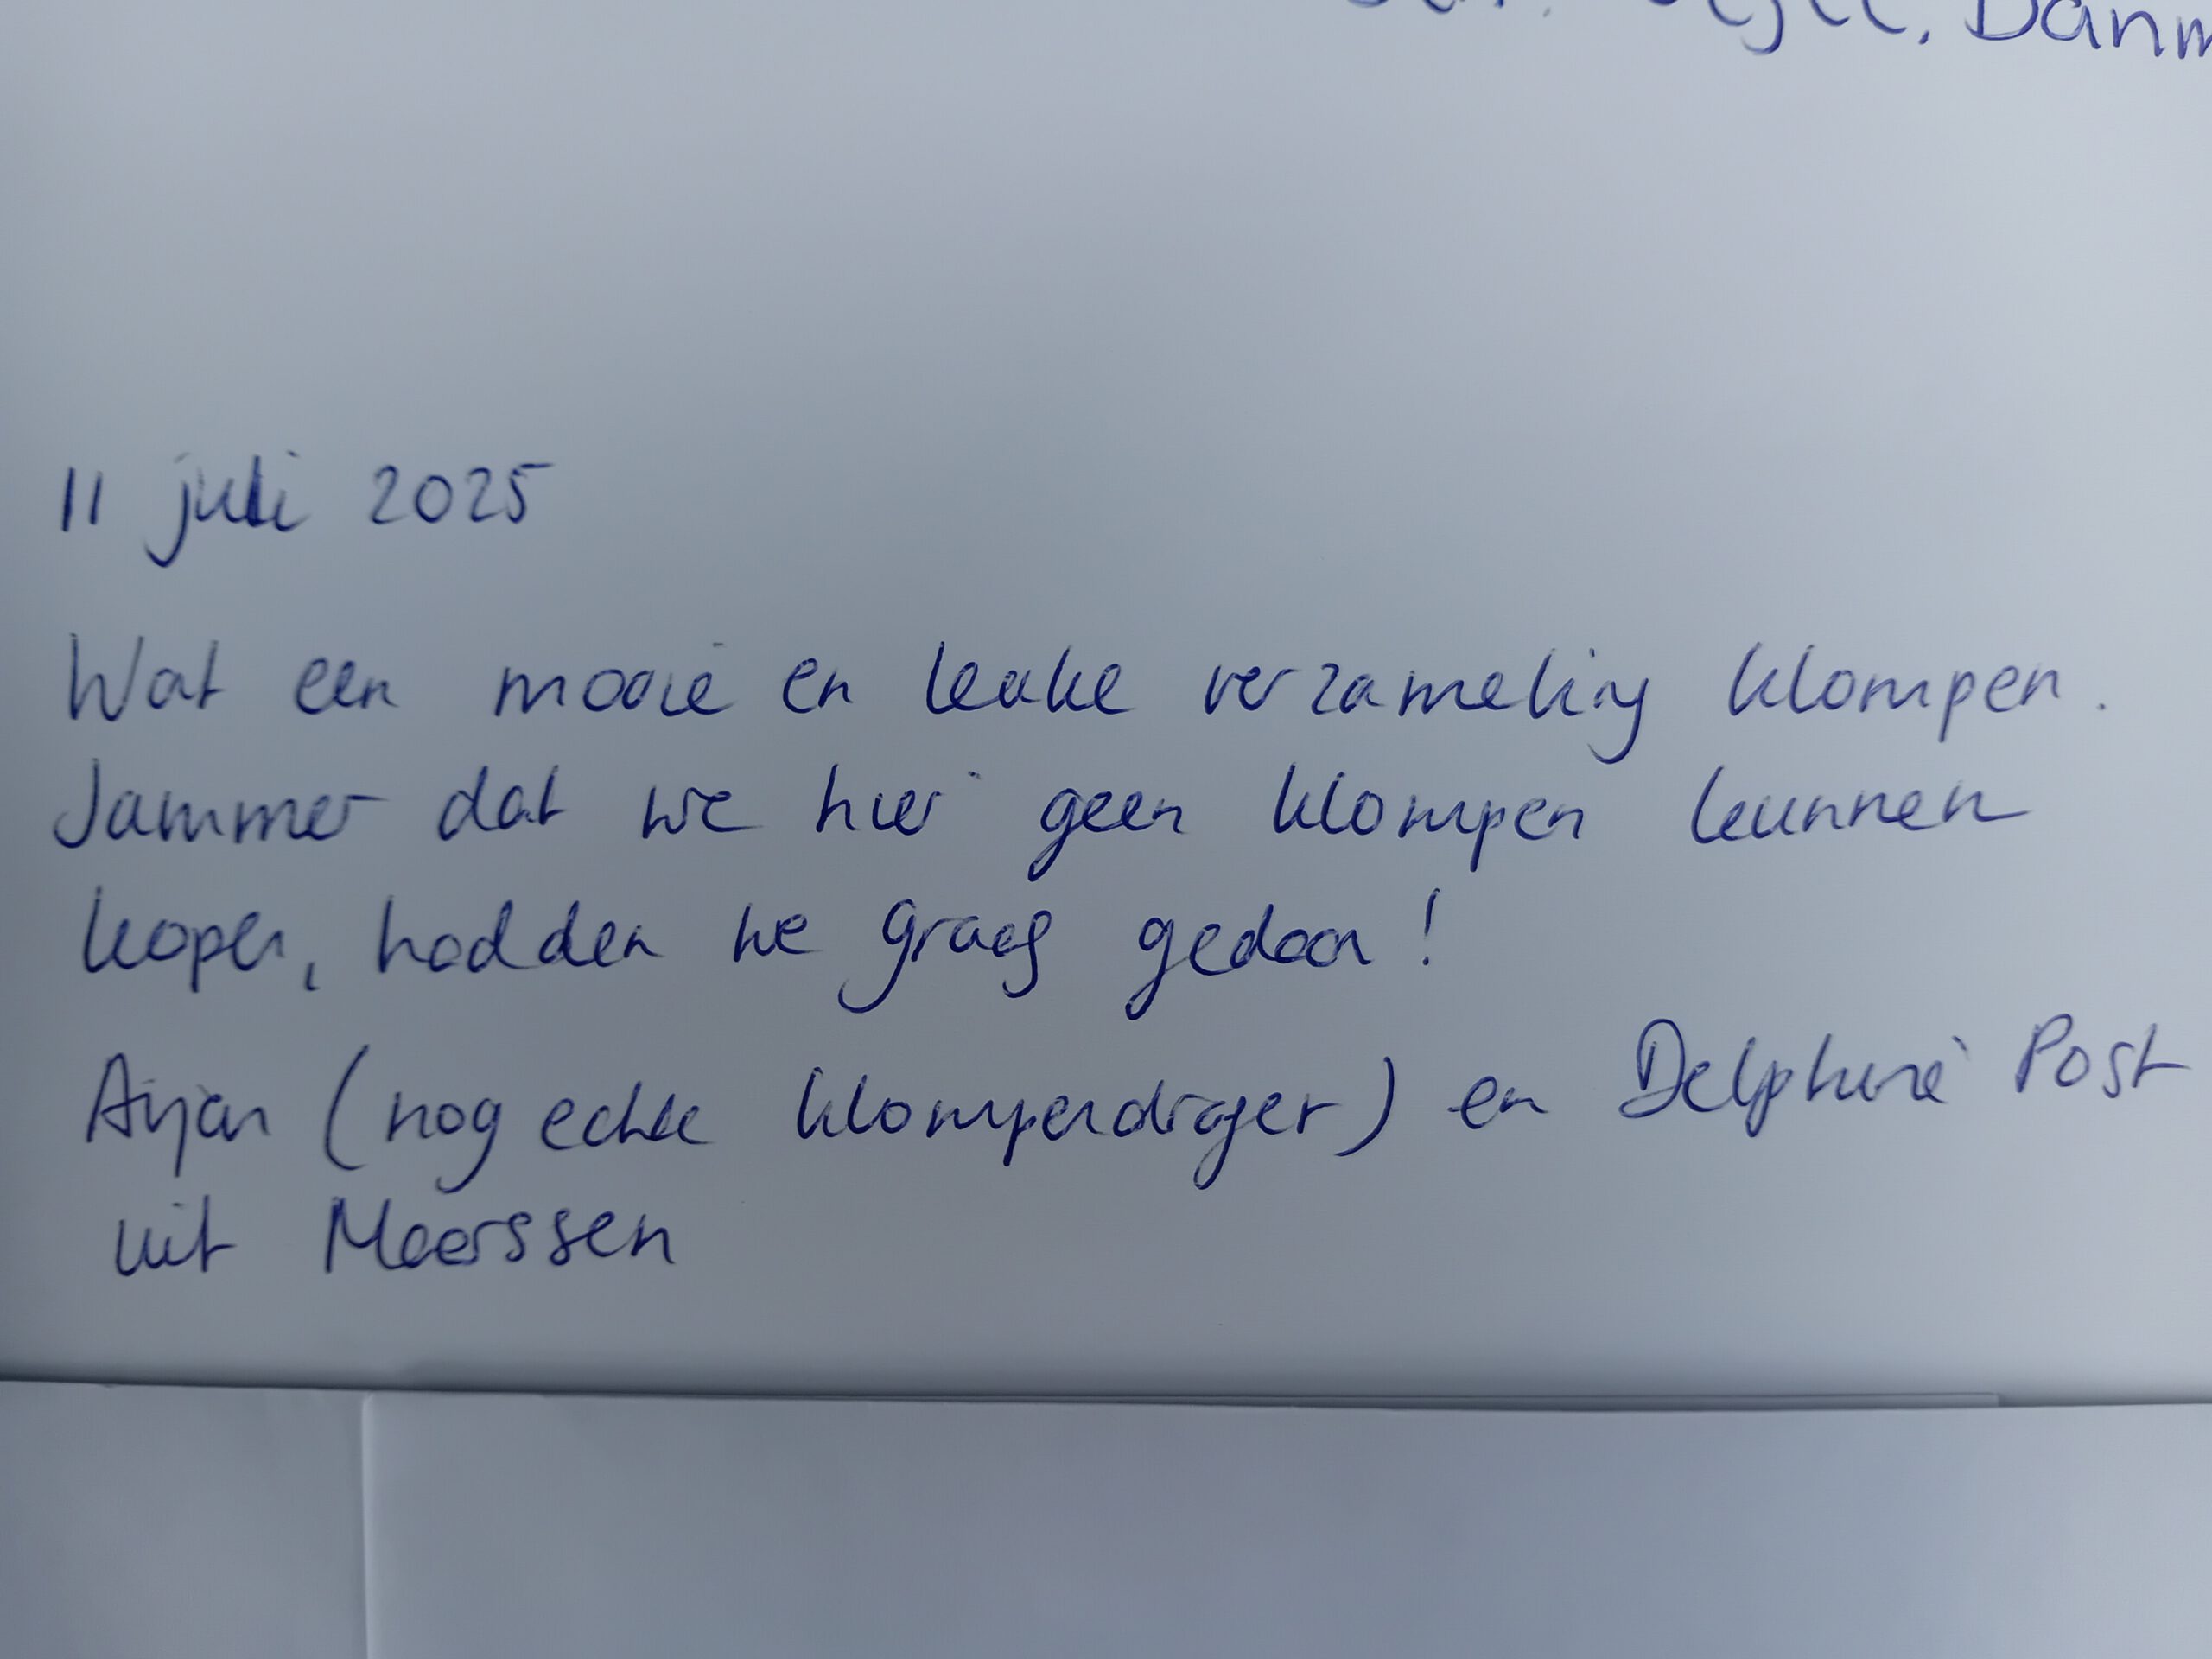 Danm
11 juli 2025
Wat een mooie en leuke verzameling klompen.
Jammer dat we hier geen klompen kunnen
kopen, hadden we graag gedaan!
Arjan (nog echte klompendrager) en Delphine Post
uit Meerssen